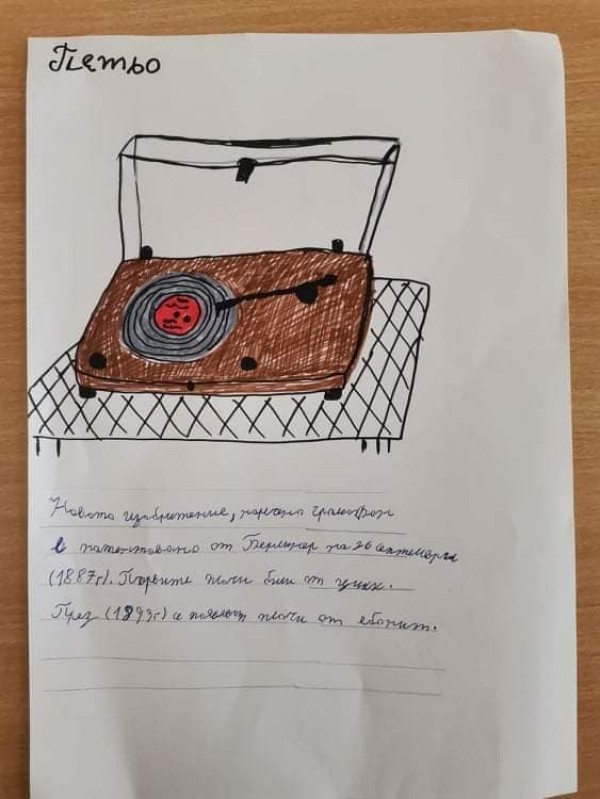 Петьо
Новото изобретение, наречено грамофон
е патентовано от Берлинер на 26 септември
(1887г). Първите плочи били от цинк.
През (1897г) се появяват плочи от ебонит.